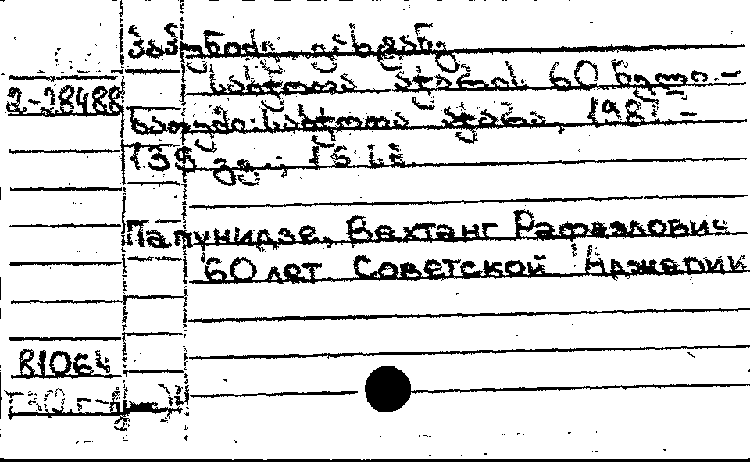 პაპუნიძე ვახტანგ
საბჭოთა აჭარის 60 წელი. –
2-28488
ბათუმი: საბჭოთა აჭარა, 1981. –
138 გვ.; 15 სმ.
Папунидзе, Вахтанг Рафаэлович
60 лет Советской Аджарии
81064